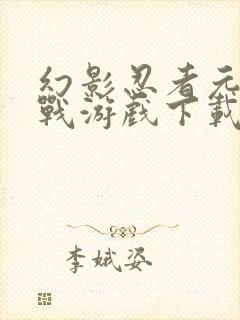 幻影忍者元
戰游戲下載
李娥姿